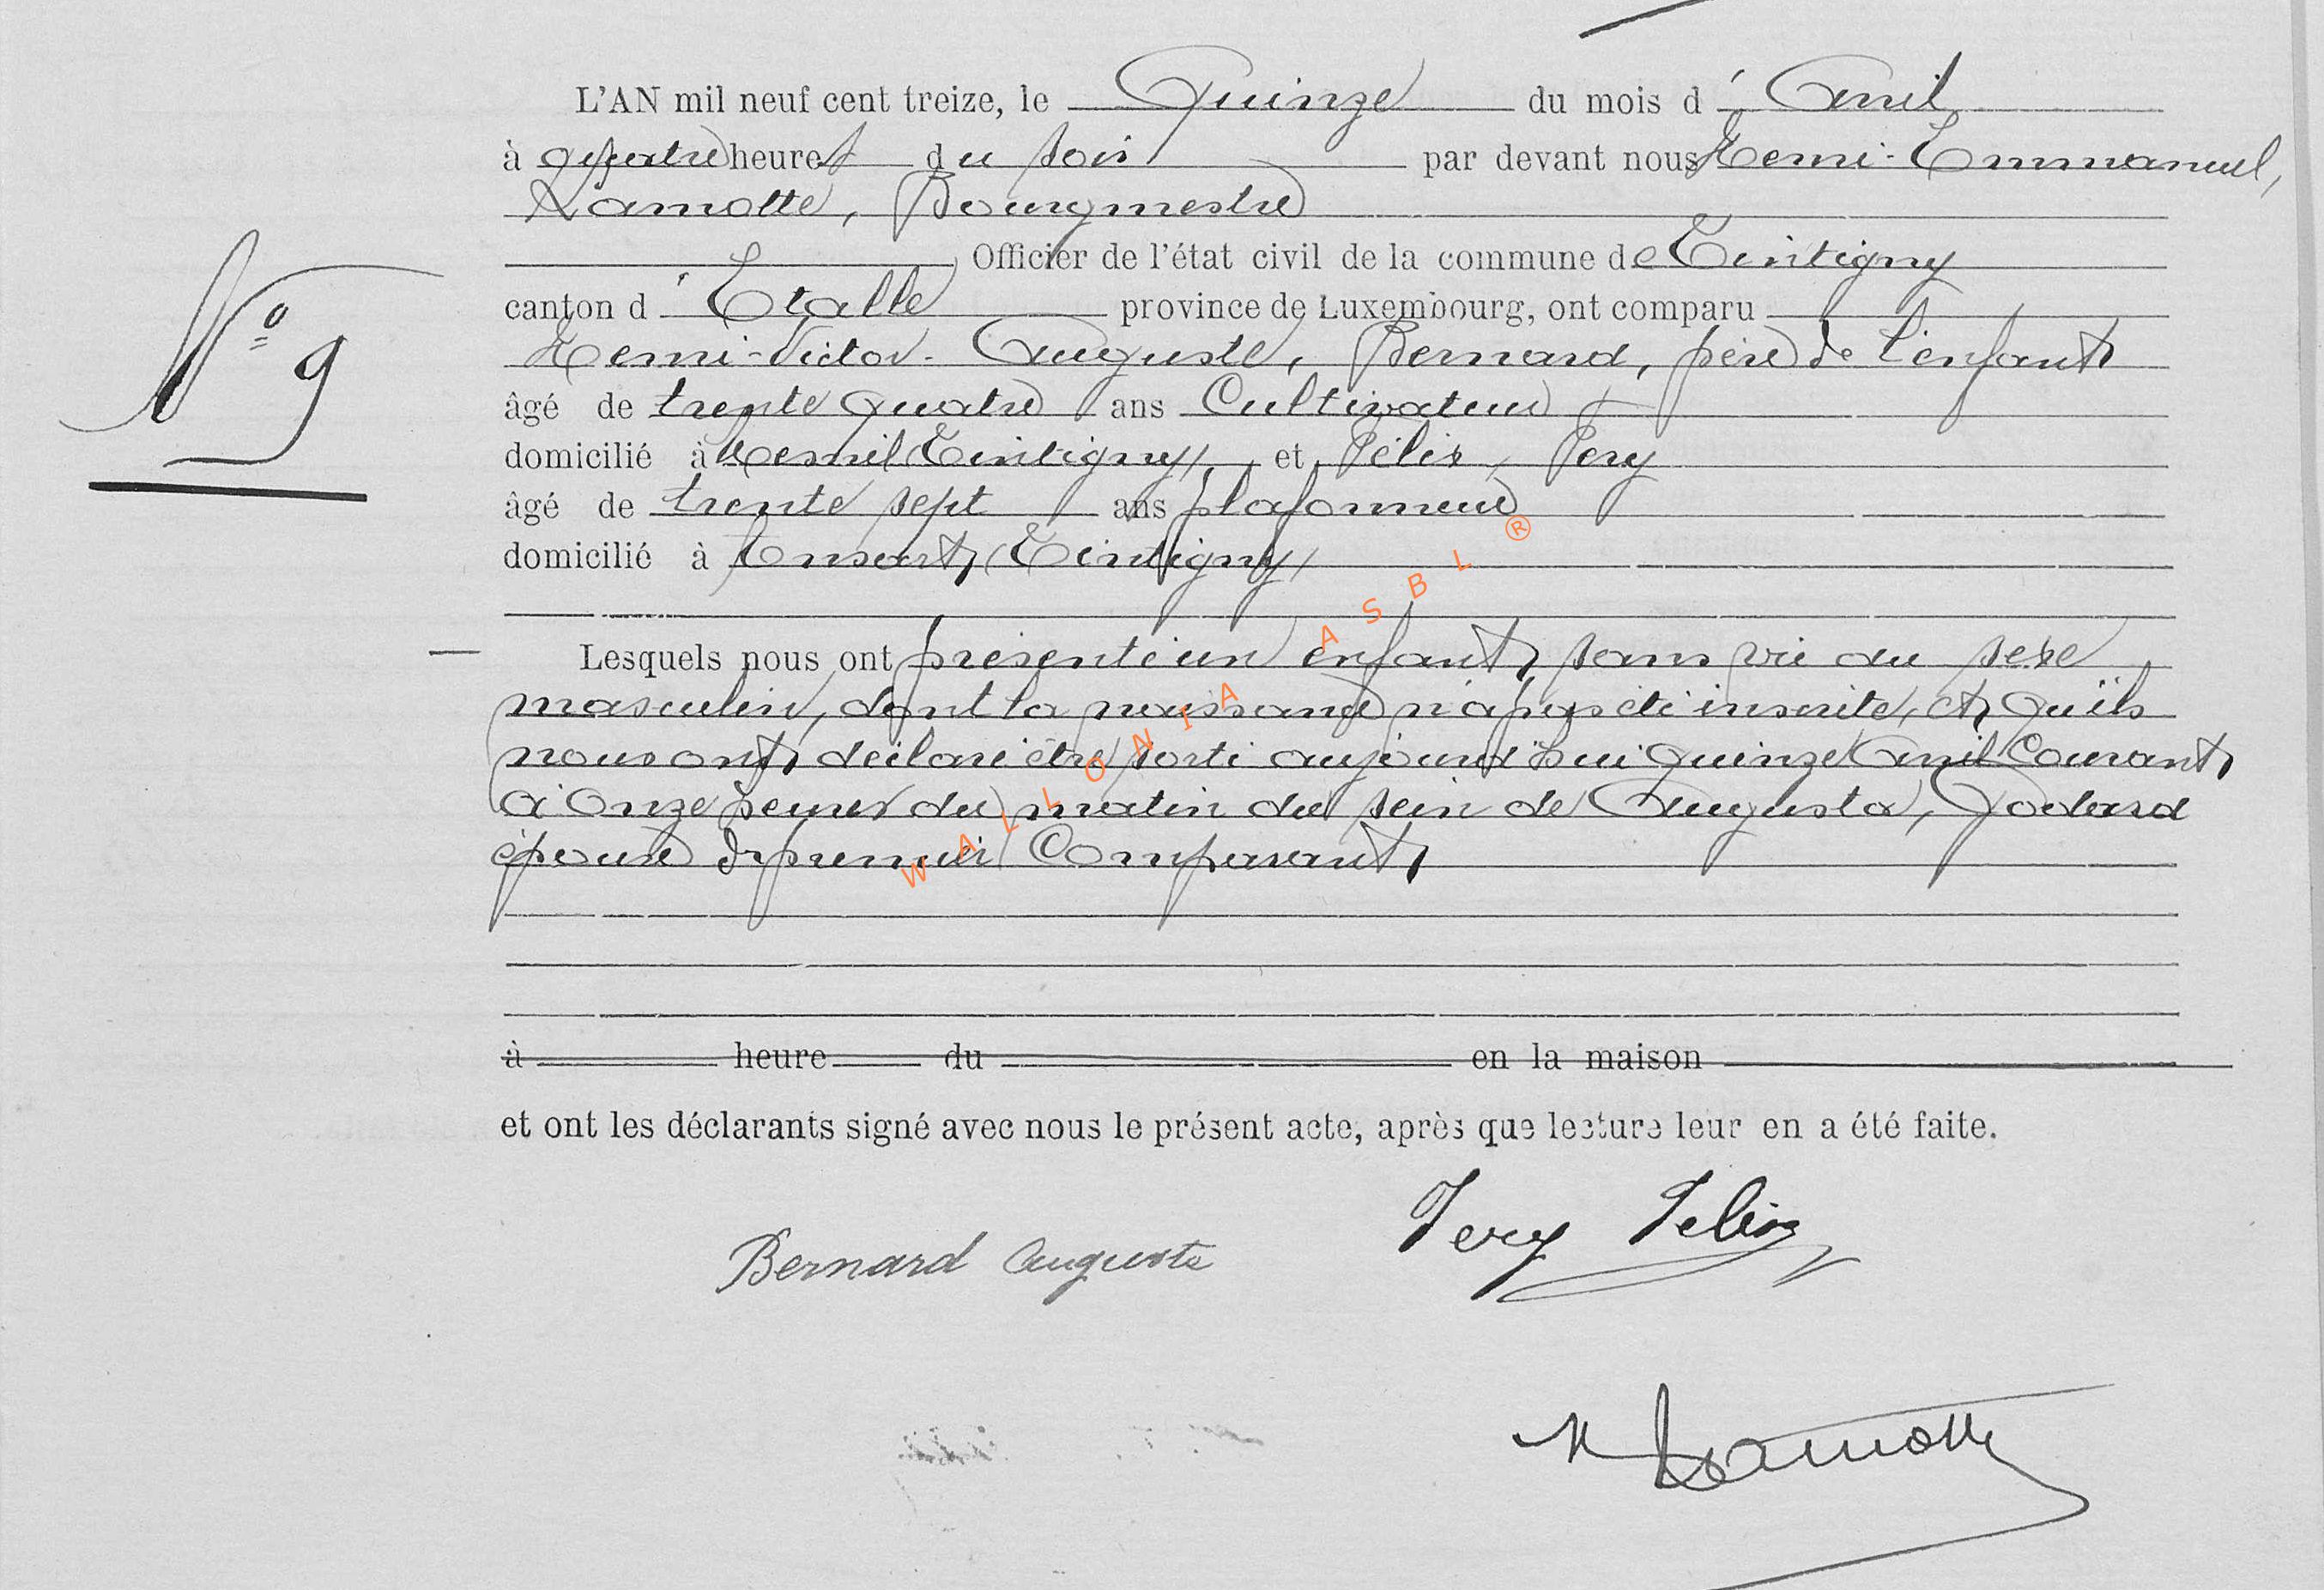 L'AN mil neuf cent treize, le Quinze du mois d'Avril
à quatre heures du soir par devant nous Henri-Emmanuel,
Lamotte, Bourgmestre
Officier de l'état civil de la commune de Tintigny
canton d'Etalle province de Luxembourg, ont comparu
N° 9
Henri-Victor-Auguste, Bernard, père de l'enfant
âgé de trente quatre ans Cultivateur
domicilié à Han (Tintigny) et Félix, Fery
âgé de trente sept ans plafonneur
domicilié à Ansart, (Tintigny)
Lesquels nous ont présenté un enfant sans vie du sexe
masculin, dont la naissance n'a pas été inscrite, et qu'ils
nous ont déclaré être sorti aujourd'hui quinze Avril Courant
à Onze heures du matin du sein de Augusta, Godard
épouse du premier Comparant
à heure du en la maison
et ont les déclarants signé avec nous le présent acte, après que lecture leur en a été faite.
Bernard Auguste Fery Félix
H Lamotte
WALLONIA ASBL ®